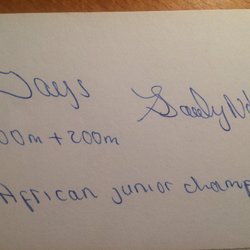 Days
00m + 200m
African junior champ